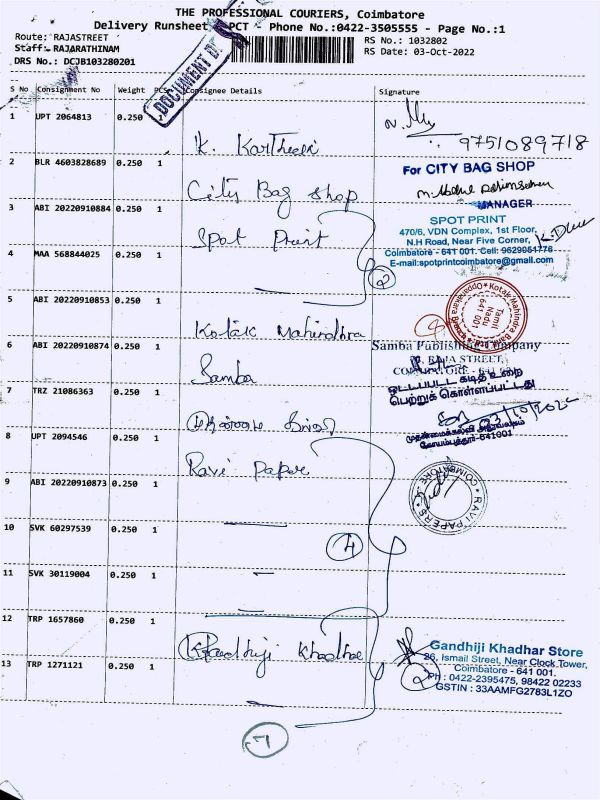 THE PROFESSIONAL COURIERS, Coimbatore
Delivery Runsheet PCT - Phone No.:0422-3505555 - Page No.:1
Route: RAJASTREET RS No.: 1032802
Staff: RAJARATHINAM RS Date: 03-Oct-2022
DRS No.: DCJB103280201
DOCUMENT
S No Consignment No Weight PCS Consignee Details Signature
1 UPT 2064813 0.250 1
9751089718
2 BLR 4603828689 0.250 1 City Bag Shop
For CITY BAG SHOP
MANAGER
3 ABI 20220910884 0.250 1 Spot Print
SPOT PRINT
470/6, VDN Complex, 1st Floor,
N.H Road, Near Five Corner,
Coimbatore - 641 001. Cell: 9629051776
E-mail:spotprintcoimbatore@gmail.com
4 MAA 568844025 0.250 1
2
5 ABI 20220910853 0.250 1 Kotak Mahindhra
Kotak Mahindra Bank
Tamil Nadu 641 001
6 ABI 20220910874 0.250 1 Samba
Samba Publishing Company
RAJA STREET,
7 TRZ 21086363 0.250 1
ஒட்டப்பட்ட கடித உறை
பெற்றுக் கொள்ளப்பட்டது
03/10/2022
கோயம்புத்தூர்-641001
8 UPT 2094546 0.250 1 Ravi Paper
COIMBATORE * RAVI PAPERS *
9 ABI 20220910873 0.250 1
10 SVK 60297539 0.250 1
4
11 SVK 30119004 0.250 1
12 TRP 1657860 0.250 1 Khadhar
Gandhiji Khadhar Store
86, Ismail Street, Near Clock Tower,
Coimbatore - 641 001.
Ph : 0422-2395475, 98422 02233
GSTIN : 33AAMFG2783L1ZO
2
13 TRP 1271121 0.250 1